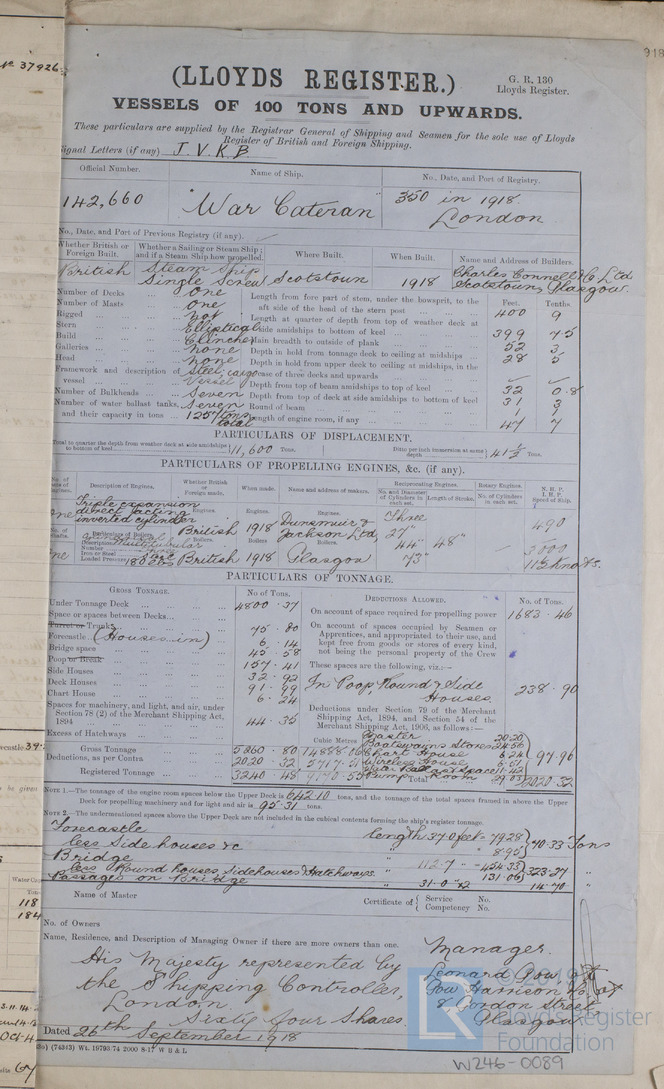 No 37926
918
(LLOYDS REGISTER.)
G. R. 130
Lloyds Register.
VESSELS OF 100 TONS AND UPWARDS.
These particulars are supplied by the Registrar General of Shipping and Seamen for the sole use of Lloyds
Register of British and Foreign Shipping.
Signal Letters (if any) J. V. K. B.
Official Number. Name of Ship. No., Date, and Port of Registry.
142,660 "War Cateran" 350 in 1918.
London
No., Date, and Port of Previous Registry (if any).
Whether British or Foreign Built. Whether a Sailing or Steam Ship; and if a Steam Ship how propelled. Where Built. When Built. Name and Address of Builders.
British Steam Ship Single Screw Scotstoun 1918 Charles Connell & Co Ltd Scotstoun, Glasgow.
Number of Decks One
Number of Masts One
Rigged Not
Stern Elliptical
Build Clincher
Galleries None
Head None
Framework and description of vessel Steel; cargo Vessel
Number of Bulkheads Seven
Number of water ballast tanks, Seven
and their capacity in tons 1257 tons total
Feet. Tenths.
Length from fore part of stem, under the bowsprit, to the aft side of the head of the stern post 400 9
Length at quarter of depth from top of weather deck at side amidships to bottom of keel 399 75
Main breadth to outside of plank 52 3
Depth in hold from tonnage deck to ceiling at midships 28 5
Depth in hold from upper deck to ceiling at midships, in the case of three decks and upwards
Depth from top of beam amidships to top of keel 32 0.8
Depth from top of deck at side amidships to bottom of keel 31 3
Round of beam 1 1
Length of engine room, if any 47 7
PARTICULARS OF DISPLACEMENT.
Total to quarter the depth from weather deck at side amidships to bottom of keel 11,600 Tons. Ditto per inch immersion at same depth 41½ Tons.
PARTICULARS OF PROPELLING ENGINES, &c. (if any).
No. of sets of Engines. Description of Engines. Whether British or Foreign made. When made. Name and address of makers. Reciprocating Engines. Rotary Engines. N. H. P. I. H. P. Speed of Ship.
No. and Diameter of Cylinders in each set. Length of Stroke. No. of Cylinders in each set.
One Triple expansion direct acting inverted cylinder
Engines. Engines. Engines.
British 1918 Dunsmuir & Jackson Ltd Three 27" 44" 73" 48" 490
No. of Shafts. Description Number Iron or Steel Loaded Pressure
One 180 lbs
Boilers. Boilers Boilers.
British 1918 Glasgow 3000
11½ Knots.
PARTICULARS OF TONNAGE.
GROSS TONNAGE. No. of Tons.
Under Tonnage Deck 4800.37
Space or spaces between Decks
Turret or Trunk 75.80
Forecastle (Houses in) 6.14
Bridge space 45.58
Poop or Break 157.41
Side Houses 32.92
Deck Houses 91.99
Chart House 6.24
Spaces for machinery, and light, and air, under Section 78 (2) of the Merchant Shipping Act, 1894 44.35
Excess of Hatchways
Cubic Metres
Gross Tonnage 5260.80 14888.06
Deductions, as per Contra 2020.32 5717.51
Registered Tonnage 3240.48 9170.55
DEDUCTIONS ALLOWED. No. of Tons.
On account of space required for propelling power 1683.46
On account of spaces occupied by Seamen or Apprentices, and appropriated to their use, and kept free from goods or stores of every kind, not being the personal property of the Crew
These spaces are the following, viz.:—
In Poop, Round & Side Houses 238.90
Deductions under Section 79 of the Merchant Shipping Act, 1894, and Section 54 of the Merchant Shipping Act, 1906, as follows:—
Master 20.20
Boatswains Stores 24.56
Chart House 6.24
Wireless House 6.51
Water Ballast Space 11.42
Pump Room 29.03
97.96
Total 2020.32
NOTE 1.—The tonnage of the engine room spaces below the Upper Deck is 642.10 tons, and the tonnage of the total spaces framed in above the Upper
Deck for propelling machinery and for light and air is 95.31 tons.
NOTE 2.—The undermentioned spaces above the Upper Deck are not included in the cubical contents forming the ship's register tonnage.
Forecastle length 37.0 feet = 79.28
less Side houses &c " 8.95 70.33 Tons
Bridge 112.7 " 454.33
less Round houses, Sidehouses & Hatchways 131.06 323.27 "
Passages on Bridge 31.0 x2 14.70 "
Name of Master Certificate of Service No. Competency No.
No. of Owners
Name, Residence, and Description of Managing Owner if there are more owners than one.
His Majesty represented by
the Shipping Controller,
London.
Sixty four Shares.
Manager.
Leonard Gow of
Gow Harrison & Co of
8 Gordon Street
Glasgow
Dated 26th September 1918
(74343) Wt. 19793/74 2000 8-17 W B & L
© 2019
Lloyd's Register
Foundation
W246-0089
118
184